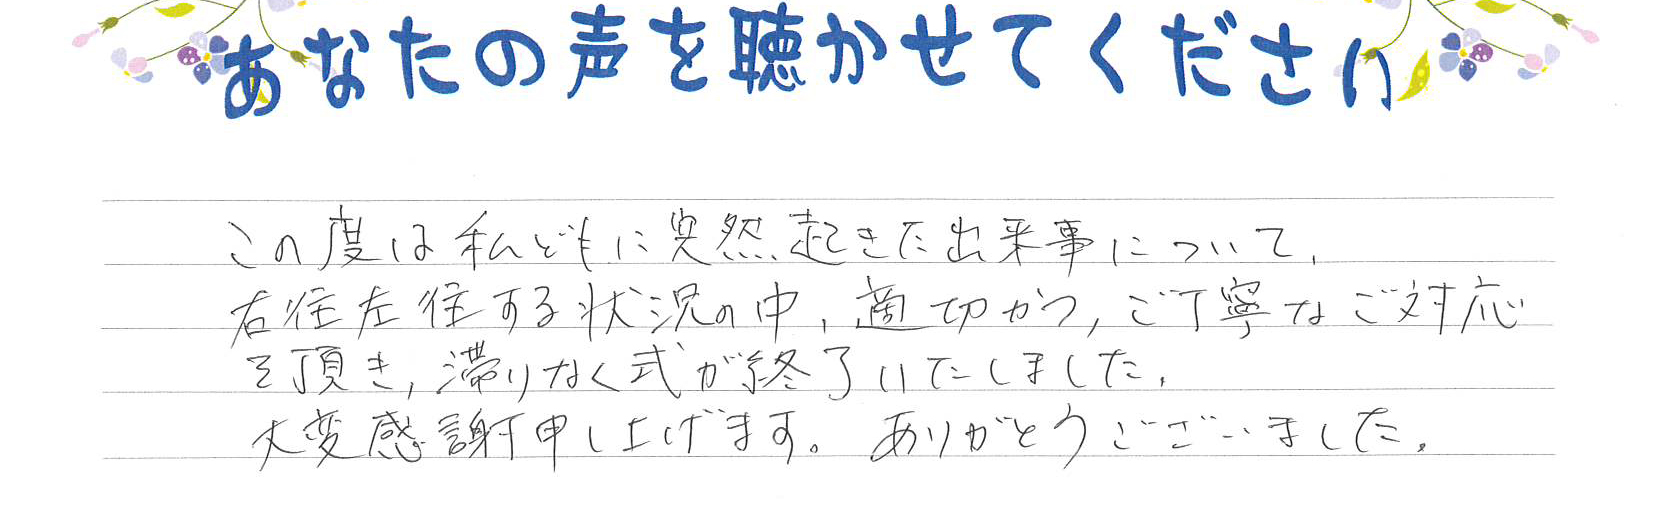 あなたの声を聴かせてください
この度は私どもに突然起きた出来事について、
右往左往する状況の中、適切かつ、ご丁寧なご対応
を頂き、滞りなく式が終了いたしました。
大変感謝申し上げます。ありがとうございました。